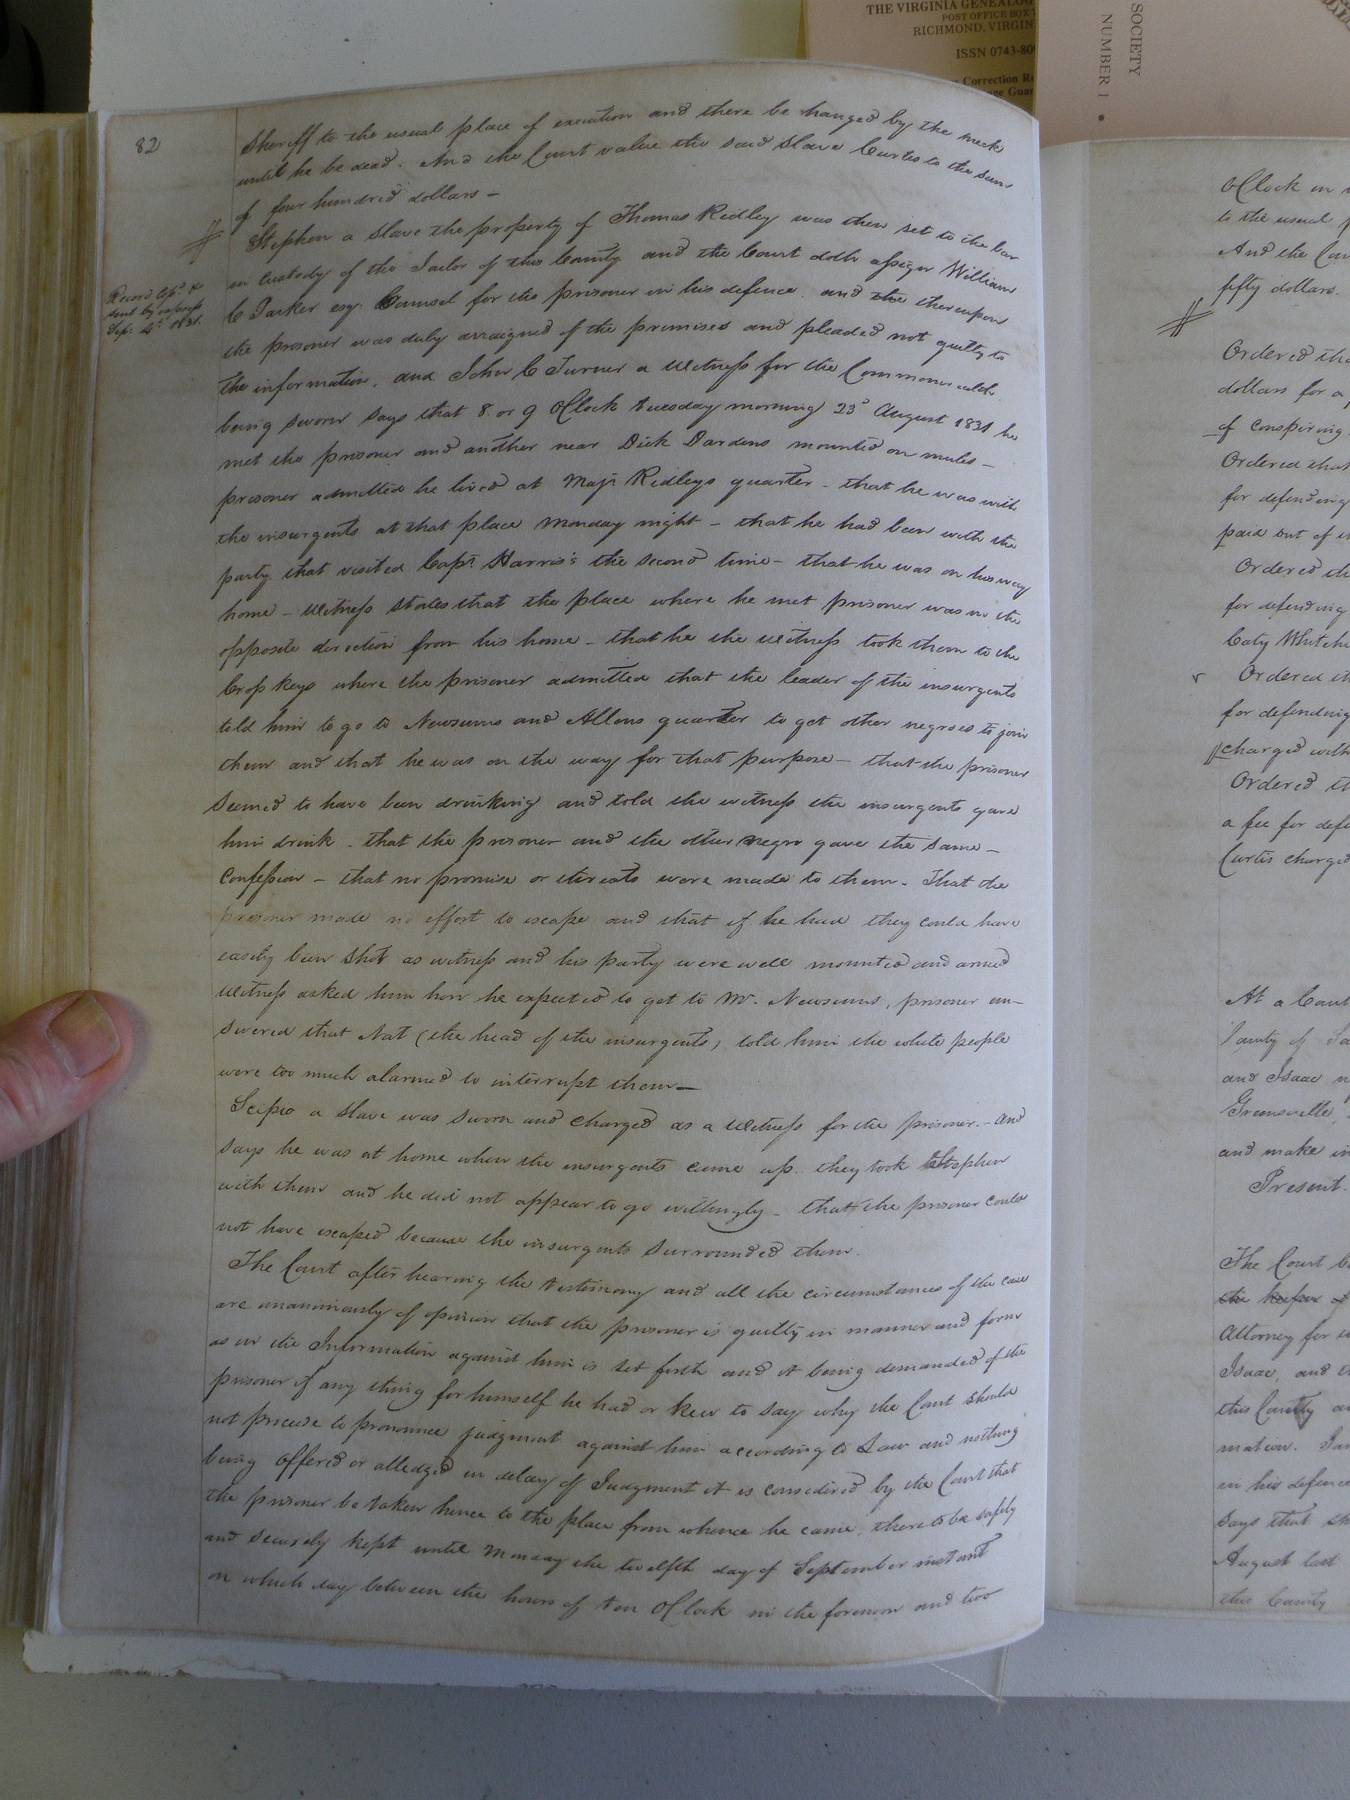 THE VIRGINIA GENEALOG
POST OFFICE BOX
RICHMOND, VIRGIN
ISSN 0743-809
Correction Re
SOCIETY
NUMBER 1
82
Sheriff to the usual place of execution and there be hanged by the neck
until he be dead. And the Court value the said Slave Curtis to the sum
of four hundred dollars —
Stephen a slave the property of Thomas Ridley was then set to the bar
in custody of the Jailor of this County and the Court doth assign William
C Parker esq. Counsel for the prisoner in his defence and the thereupon
the prisoner was duly arraigned of the premises and pleaded not guilty to
the information, and John C Turner a Witness for the Commonwealth
being sworn says that 8 or 9 OClock tuesday morning 23d August 1831 he
met the prisoner and another near Dick Dardens mounted on mules —
prisoner admitted he lived at Majr Ridleys quarter – that he was with
the insurgents at that place Monday night – that he had been with the
party that visited Capt Harris's the second time – that he was on his way
home – Witness states that the place where he met prisoner was in the
opposite direction from his home – that he the Witness took them to the
Cross Keys where the prisoner admitted that the leader of the insurgents
told him to go to Newsums and Allens quarter to get other negroes to join
them and that he was on the way for that purpose – that the prisoner
Seemed to have been drinking and told the witness the insurgents gave
him drink – that the prisoner and the other negro gave the same –
Confession – that no promise or threats were made to them – That the
prisoner made no effort to escape and that if he had they could have
easily been shot as witness and his party were well mounted and armed
Witness asked him how he expected to get to Mr. Newsums, prisoner an-
swered that Nat (the head of the insurgents) told him the white people
were too much alarmed to interrupt them —
Scipio a slave was sworn and charged as a Witness for the prisoner – and
says he was at home when the insurgents came up. they took Stephen
with them and he did not appear to go willingly – that the prisoner could
not have escaped because the insurgents surrounded them.
The Court after hearing the testimony and all the circumstances of the case
are unanimously of opinion that the prisoner is guilty in manner and form
as in the Information against him is set forth and it being demanded of the
prisoner if any thing for himself he had or knew to say why the Court should
not proceed to pronounce judgment against him according to Law and nothing
being offered or alledged in delay of Judgment it is considered by the Court that
the prisoner be taken hence to the place from whence he came, there to be safely
and securely kept until Monday the twelfth day of September instant
on which day between the hours of ten OClock in the forenoon and two
Record Copd &
sent by express
Sep: 4th 1831.
OClock in
to the usual p
And the Cou
fifty dollars.
Ordered tha
dollars for a
of conspiring
Ordered that
for defending
paid out of t
Ordered th
for defending
Caty Whitehe
Ordered th
for defending
charged with
Ordered th
a fee for defe
Curtis charged
At a Court
County of So
and Isaac n
Greensville
and make in
Present.
The Court b
Attorney for
Isaac, and t
this County an
mation. Jam
in his defence
says that sh
August last
this County